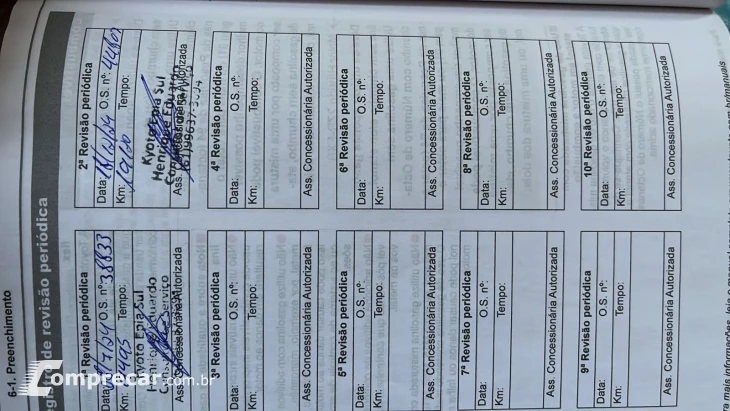 6-1. Preenchimento
de revisão periódica
Revisão periódica
Data: O.S. nº: 38833
Km: Tempo:
Ass. Concessionária Autorizada
2ª Revisão periódica
Data: O.S. nº:
Km: Tempo:
Ass. Concessionária Autorizada
3ª Revisão periódica
Data: O.S. nº:
Km: Tempo:
Ass. Concessionária Autorizada
4ª Revisão periódica
Data: O.S. nº:
Km: Tempo:
Ass. Concessionária Autorizada
5ª Revisão periódica
Data: O.S. nº:
Km: Tempo:
Ass. Concessionária Autorizada
6ª Revisão periódica
Data: O.S. nº:
Km: Tempo:
Ass. Concessionária Autorizada
7ª Revisão periódica
Data: O.S. nº:
Km: Tempo:
Ass. Concessionária Autorizada
8ª Revisão periódica
Data: O.S. nº:
Km: Tempo:
Ass. Concessionária Autorizada
9ª Revisão periódica
Data: O.S. nº:
Km: Tempo:
Ass. Concessionária Autorizada
10ª Revisão periódica
Data: O.S. nº:
Km: Tempo:
Ass. Concessionária Autorizada
mais informações, leia o
Comprecar.com.br